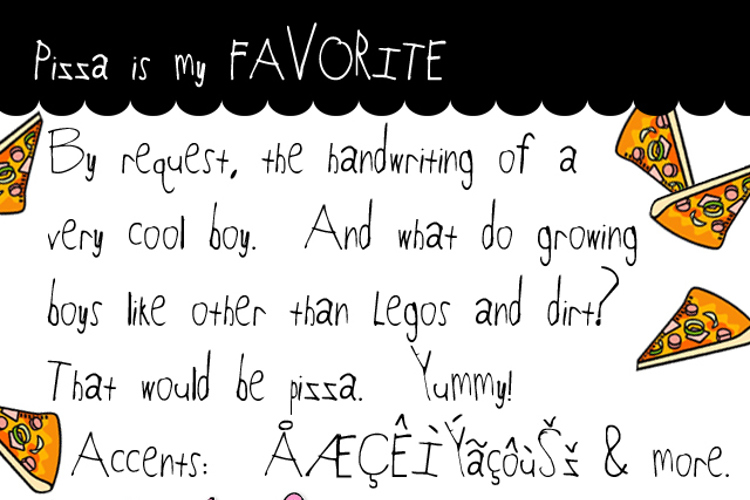 Pizza is my FAVORITE
By request, the handwriting of a
very cool boy. And what do growing
boys like other than Legos and dirt?
That would be pizza. Yummy!
Accents: ÅÆÇÊÌÝãçôùŠž & more.